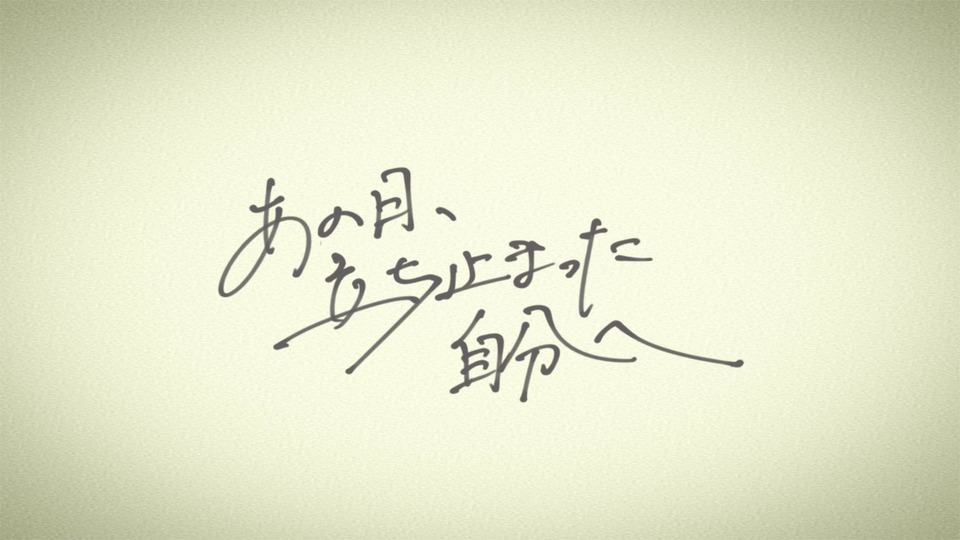 あの日、
立ち止まった
自分へ